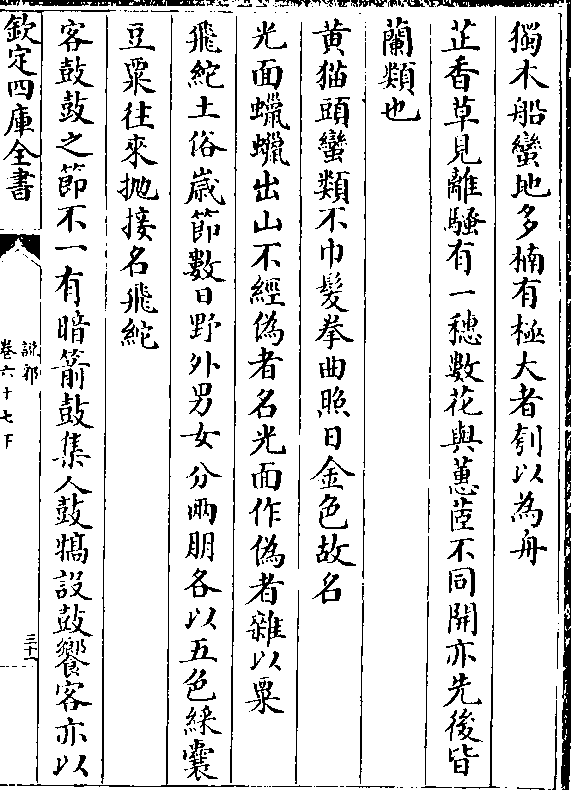 獨木船蠻地多楠有極大者刳以為舟
芷香草見離騷有一穗數花與蕙茝不同開亦先後皆
蘭類也
黃猫頭蠻類不巾髮拳曲照日金色故名
光面蠟蠟出山不經偽者名光面作偽者雜以粟
飛紽土俗歲節數日野外男女分兩朋各以五色綵囊
豆粟往來拋接名飛紽
客鼓鼓之節不一有暗箭鼓集人鼓犒設鼓饗客亦以
欽定四庫全書
說郛
卷六十七下
三十一